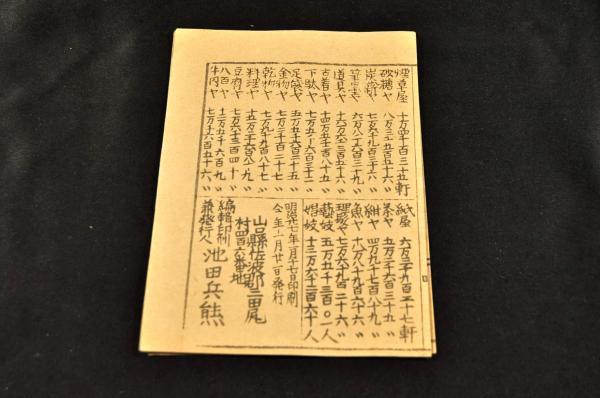 煙草屋 十万四千百三十五軒
砂糖ヤ 八万三千五百五十六〃
炭薪ヤ 七万六千九百三十六〃
六万八千六百三十九〃
道具ヤ 十六万六千三百五十六〃
古着ヤ 十四万五千百八十五〃
下駄ヤ 七万五千六百三十一〃
足袋ヤ 五万五千六百三十五〃
金物ヤ 七万三千百二十七〃
乾物ヤ 七万九千九百八十七〃
料理ヤ 十五万三千六百八十九〃
豆府ヤ 七万六千三百四十〃
八百ヤ 十三万五千六百九〃
牛肉ヤ 七万千六百五十六〃
紙屋 六万三千九百五十七軒
茶ヤ 五万三千六百三十五〃
紺ヤ 四万九千七百八十九〃
魚ヤ 十八万八千九百六十六〃
理髪ヤ 七万六千九百二十六〃
藝妓 五万五千三百〇一人
娼妓 十三万六千二百六十人
七年二月十七日印刷
仝年二月廿一日発行
山口縣佐波郡三田尻
村四百六番地
編輯印刷
兼発行人 池田兵熊